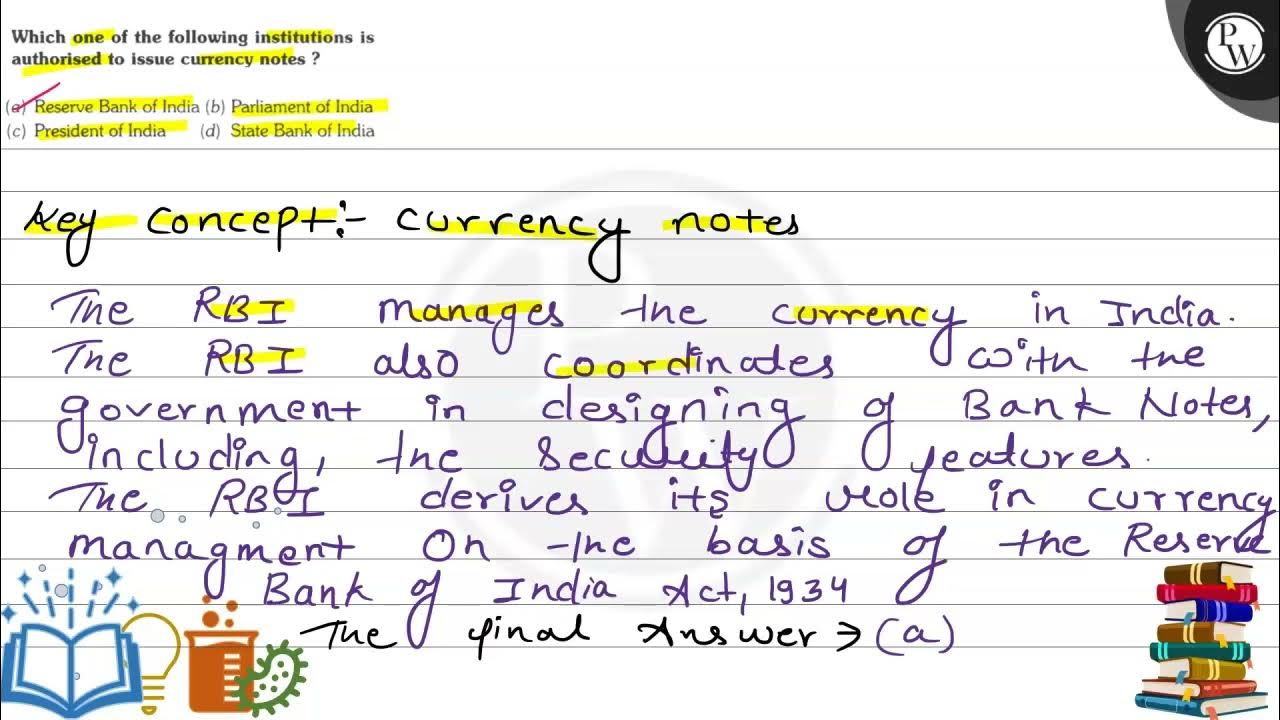 Which one of the following institutions is
authorised to issue currency notes ?
(a) Reserve Bank of India (b) Parliament of India
(c) President of India (d) State Bank of India
PW
Key concept:- currency notes
The RBI manages the currency in India.
The RBI also coordinates with the
government in designing of Bank Notes,
including, the security features.
The RBI derives its role in currency
managment on the basis of the Reserve
Bank of India Act, 1934
The final Answer → (a)